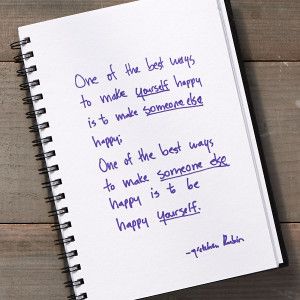 One of the best ways
to make yourself happy
is to make someone else
happy;
One of the best ways
to make someone else
happy is to be
happy yourself.
-gretchen Rubin